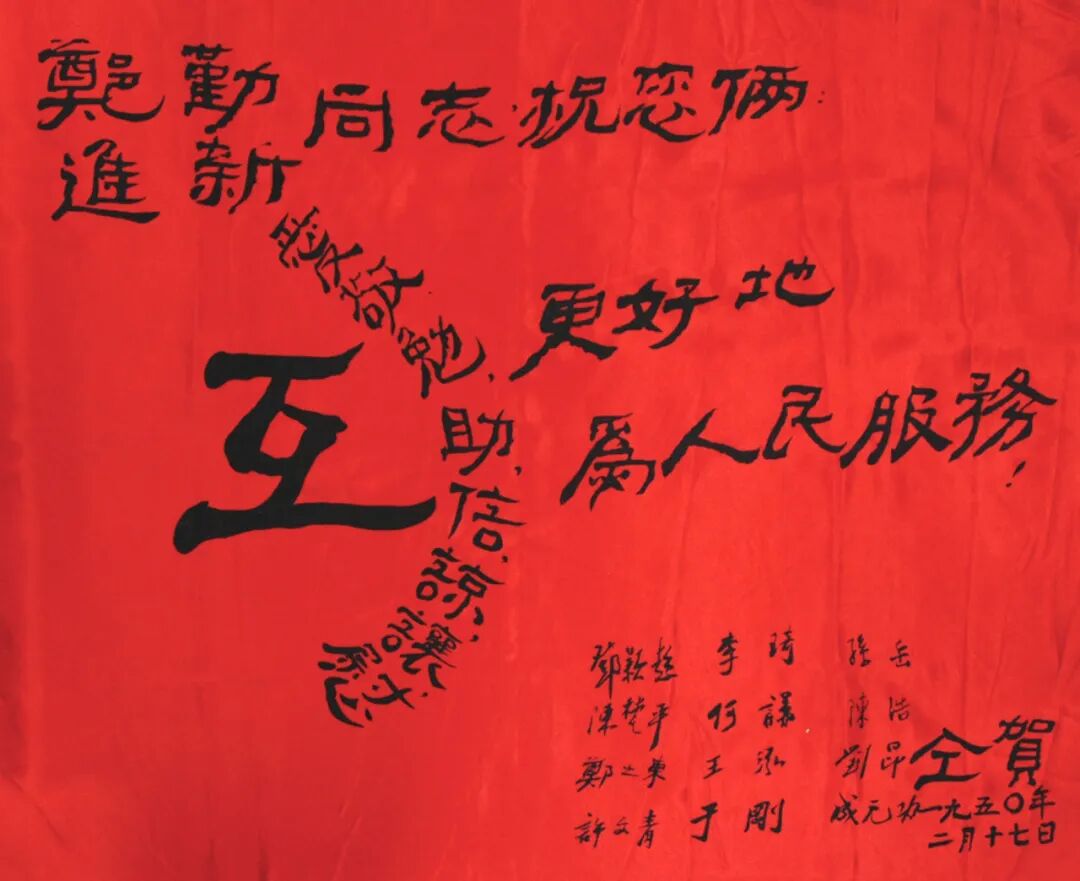 鄭 勤
進 新
同志:祝您俩:
互
愛、敬、勉、助、信、諒、讓、慰
更好地
為人民服務!
鄧穎超 李琦 孫岳
陳楚平 何謙 陳浩
鄭之東 王泓 劉昂
許文青 于剛 成元功
仝賀
一九五〇年
二月十七日